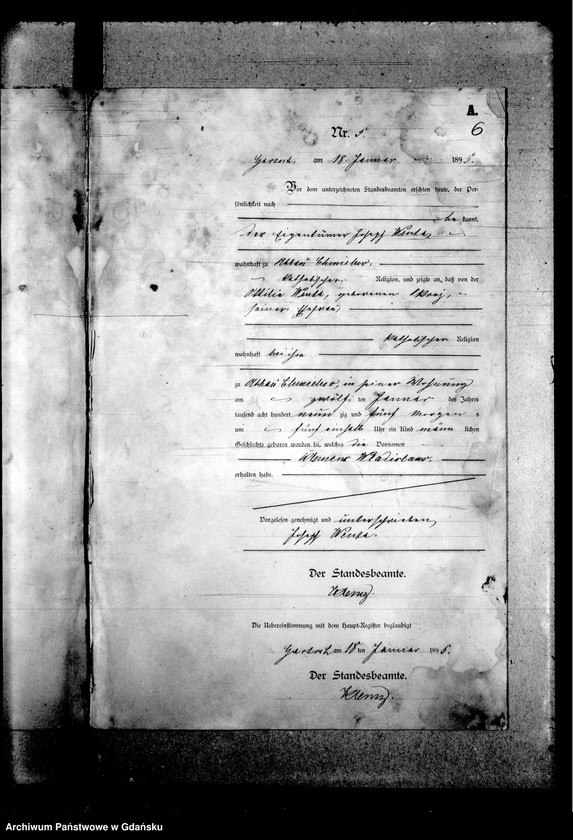 A.
6
Nr. 5.
am 18 Januar 1895.
Vor dem unterzeichneten Standesbeamten erschien heute, der Per-
sönlichkeit nach
be kannt,
der Eigentümer Joseph Wenta,
wohnhaft zu Abbau Chmielno,
katholischer Religion, und zeigte an, daß von der
Ottilie Wenta, geborenen
seiner Ehefrau
katholischer Religion
wohnhaft bei ihm
zu Abbau Chmielno, in seiner Wohnung
am zwölften Januar des Jahres
tausend acht hundert neun zig und fünf Morgens
um fünf einhalb Uhr ein Kind männ lichen
Geschlechts geboren worden sei, welches die Vornamen
Klemens Wladislaus,
erhalten habe.
Vorgelesen genehmigt und unterschrieben
Joseph Wenta.
Der Standesbeamte.
Die Uebereinstimmung mit dem Haupt-Register beglaubigt
am 18 ten Januar 1895.
Der Standesbeamte.
Archiwum Państwowe w Gdańsku